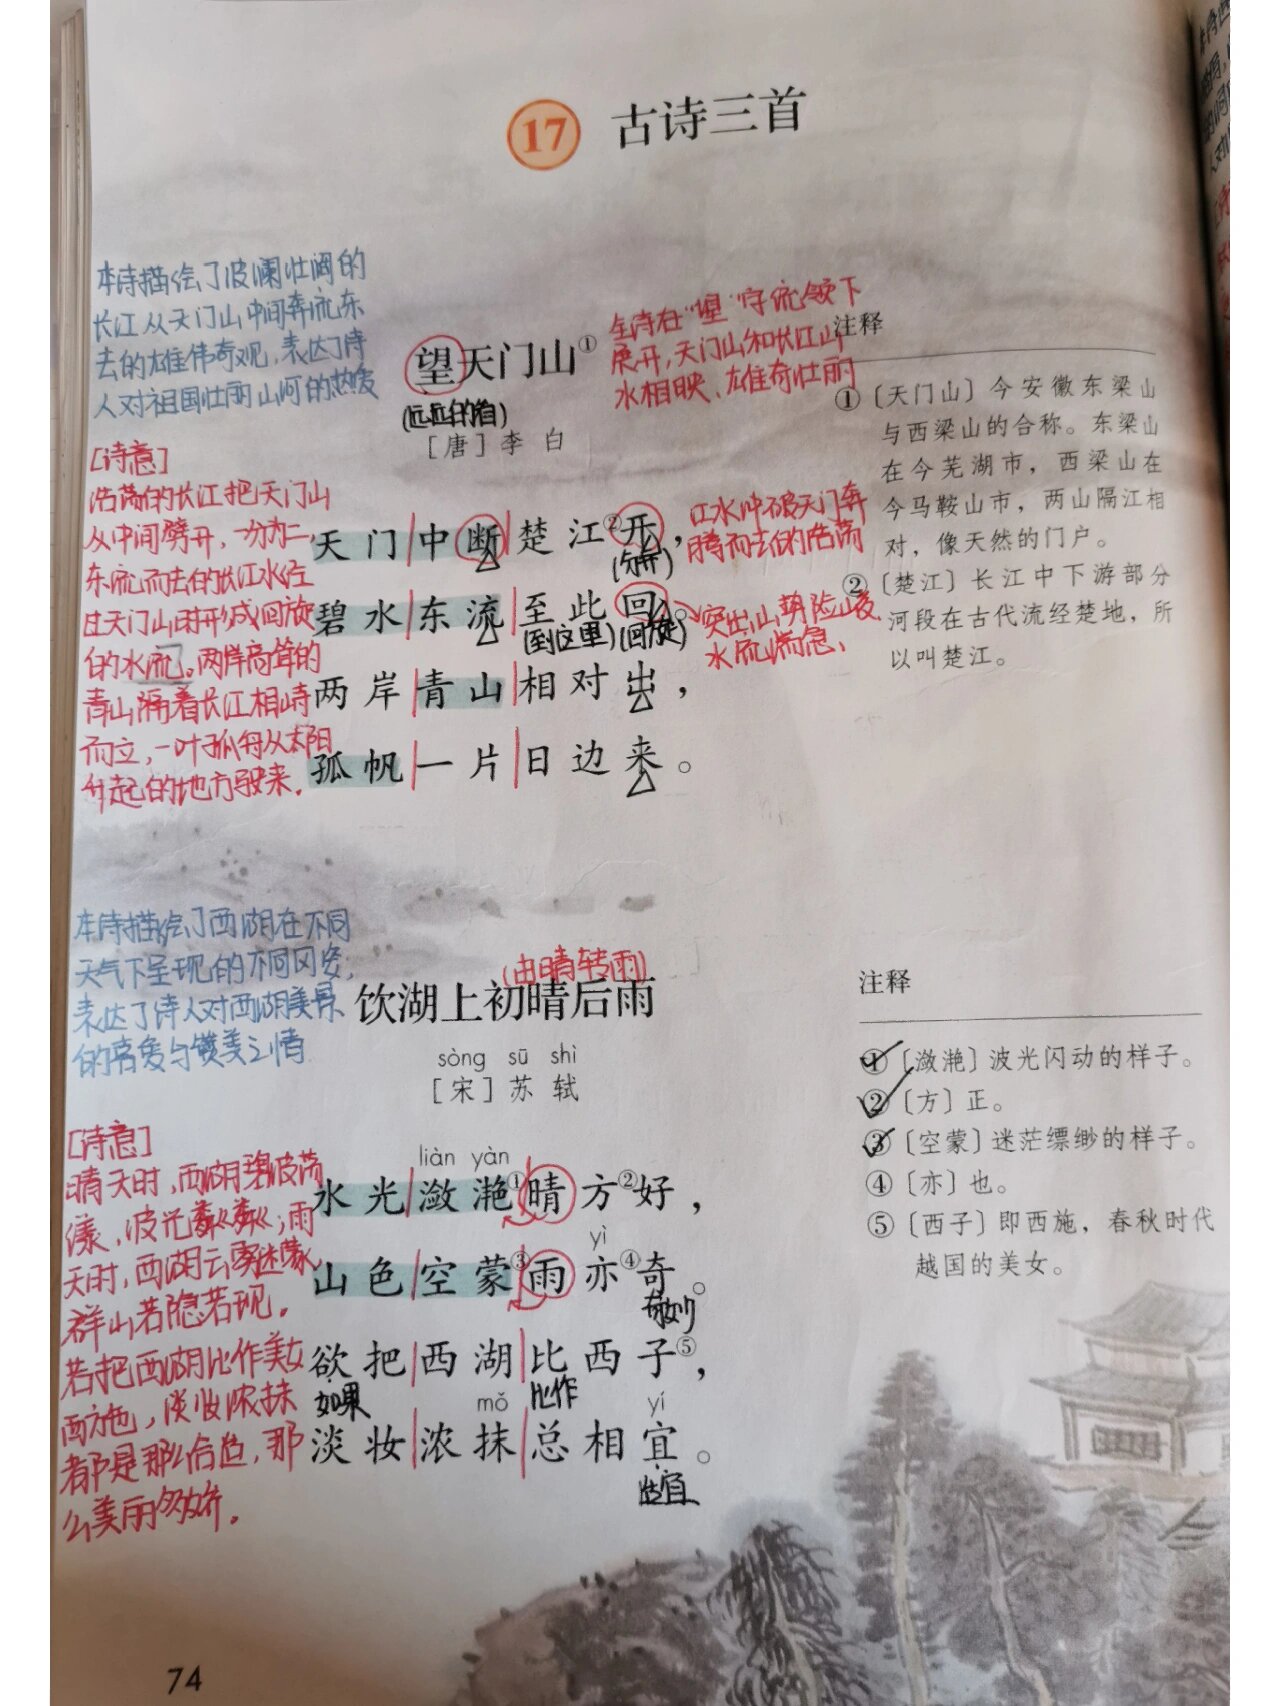 17 古诗三首
本诗描绘了波澜壮阔的
长江从天门山中间奔流东
去的雄伟奇观,表达了诗
人对祖国壮丽山河的热爱
望天门山①
(远远的看)
[唐]李 白
全诗在“望”字统领下
展开,天门山和长江山
水相映、雄奇壮丽
[诗意]
浩荡的长江把天门山
从中间劈开,一分为二,
东流而去的长江水经
过天门山时形成回旋
的水流。两岸高耸的
青山隔着长江相峙
而立,一叶孤舟从太阳
升起的地方驶来.
天门中断楚江②开,
(分开)
江水冲破天门奔
腾而去的浩荡
碧水东流至此回。
(到这里)(回旋)
突出山势险峻
水流湍急、
两岸青山相对出,
孤帆一片日边来。
注释
①〔天门山〕今安徽东梁山
与西梁山的合称。东梁山
在今芜湖市,西梁山在
今马鞍山市,两山隔江相
对,像天然的门户。
②〔楚江〕长江中下游部分
河段在古代流经楚地,所
以叫楚江。
本诗描绘了西湖在不同
天气下呈现的不同风姿,
表达了诗人对西湖美景
的喜爱与赞美之情
(由晴转雨)
饮湖上初晴后雨
sòng sū shì
[宋]苏 轼
[诗意]
晴天时,西湖碧波荡
漾,波光粼粼;雨
天时,西湖云雾迷蒙,
群山若隐若现。
若把西湖比作美女
西施,淡妆浓抹
都是那么合适,那
么美丽多娇。
liàn yàn
水光潋滟①晴方②好,
yì
山色空蒙③雨亦④奇。
奇妙
欲把西湖比西子⑤,
如果 比作
mǒ yí
淡妆浓抹总相宜。
适宜
注释
①〔潋滟〕波光闪动的样子。
②〔方〕正。
③〔空蒙〕迷茫缥缈的样子。
④〔亦〕也。
⑤〔西子〕即西施,春秋时代
越国的美女。
74